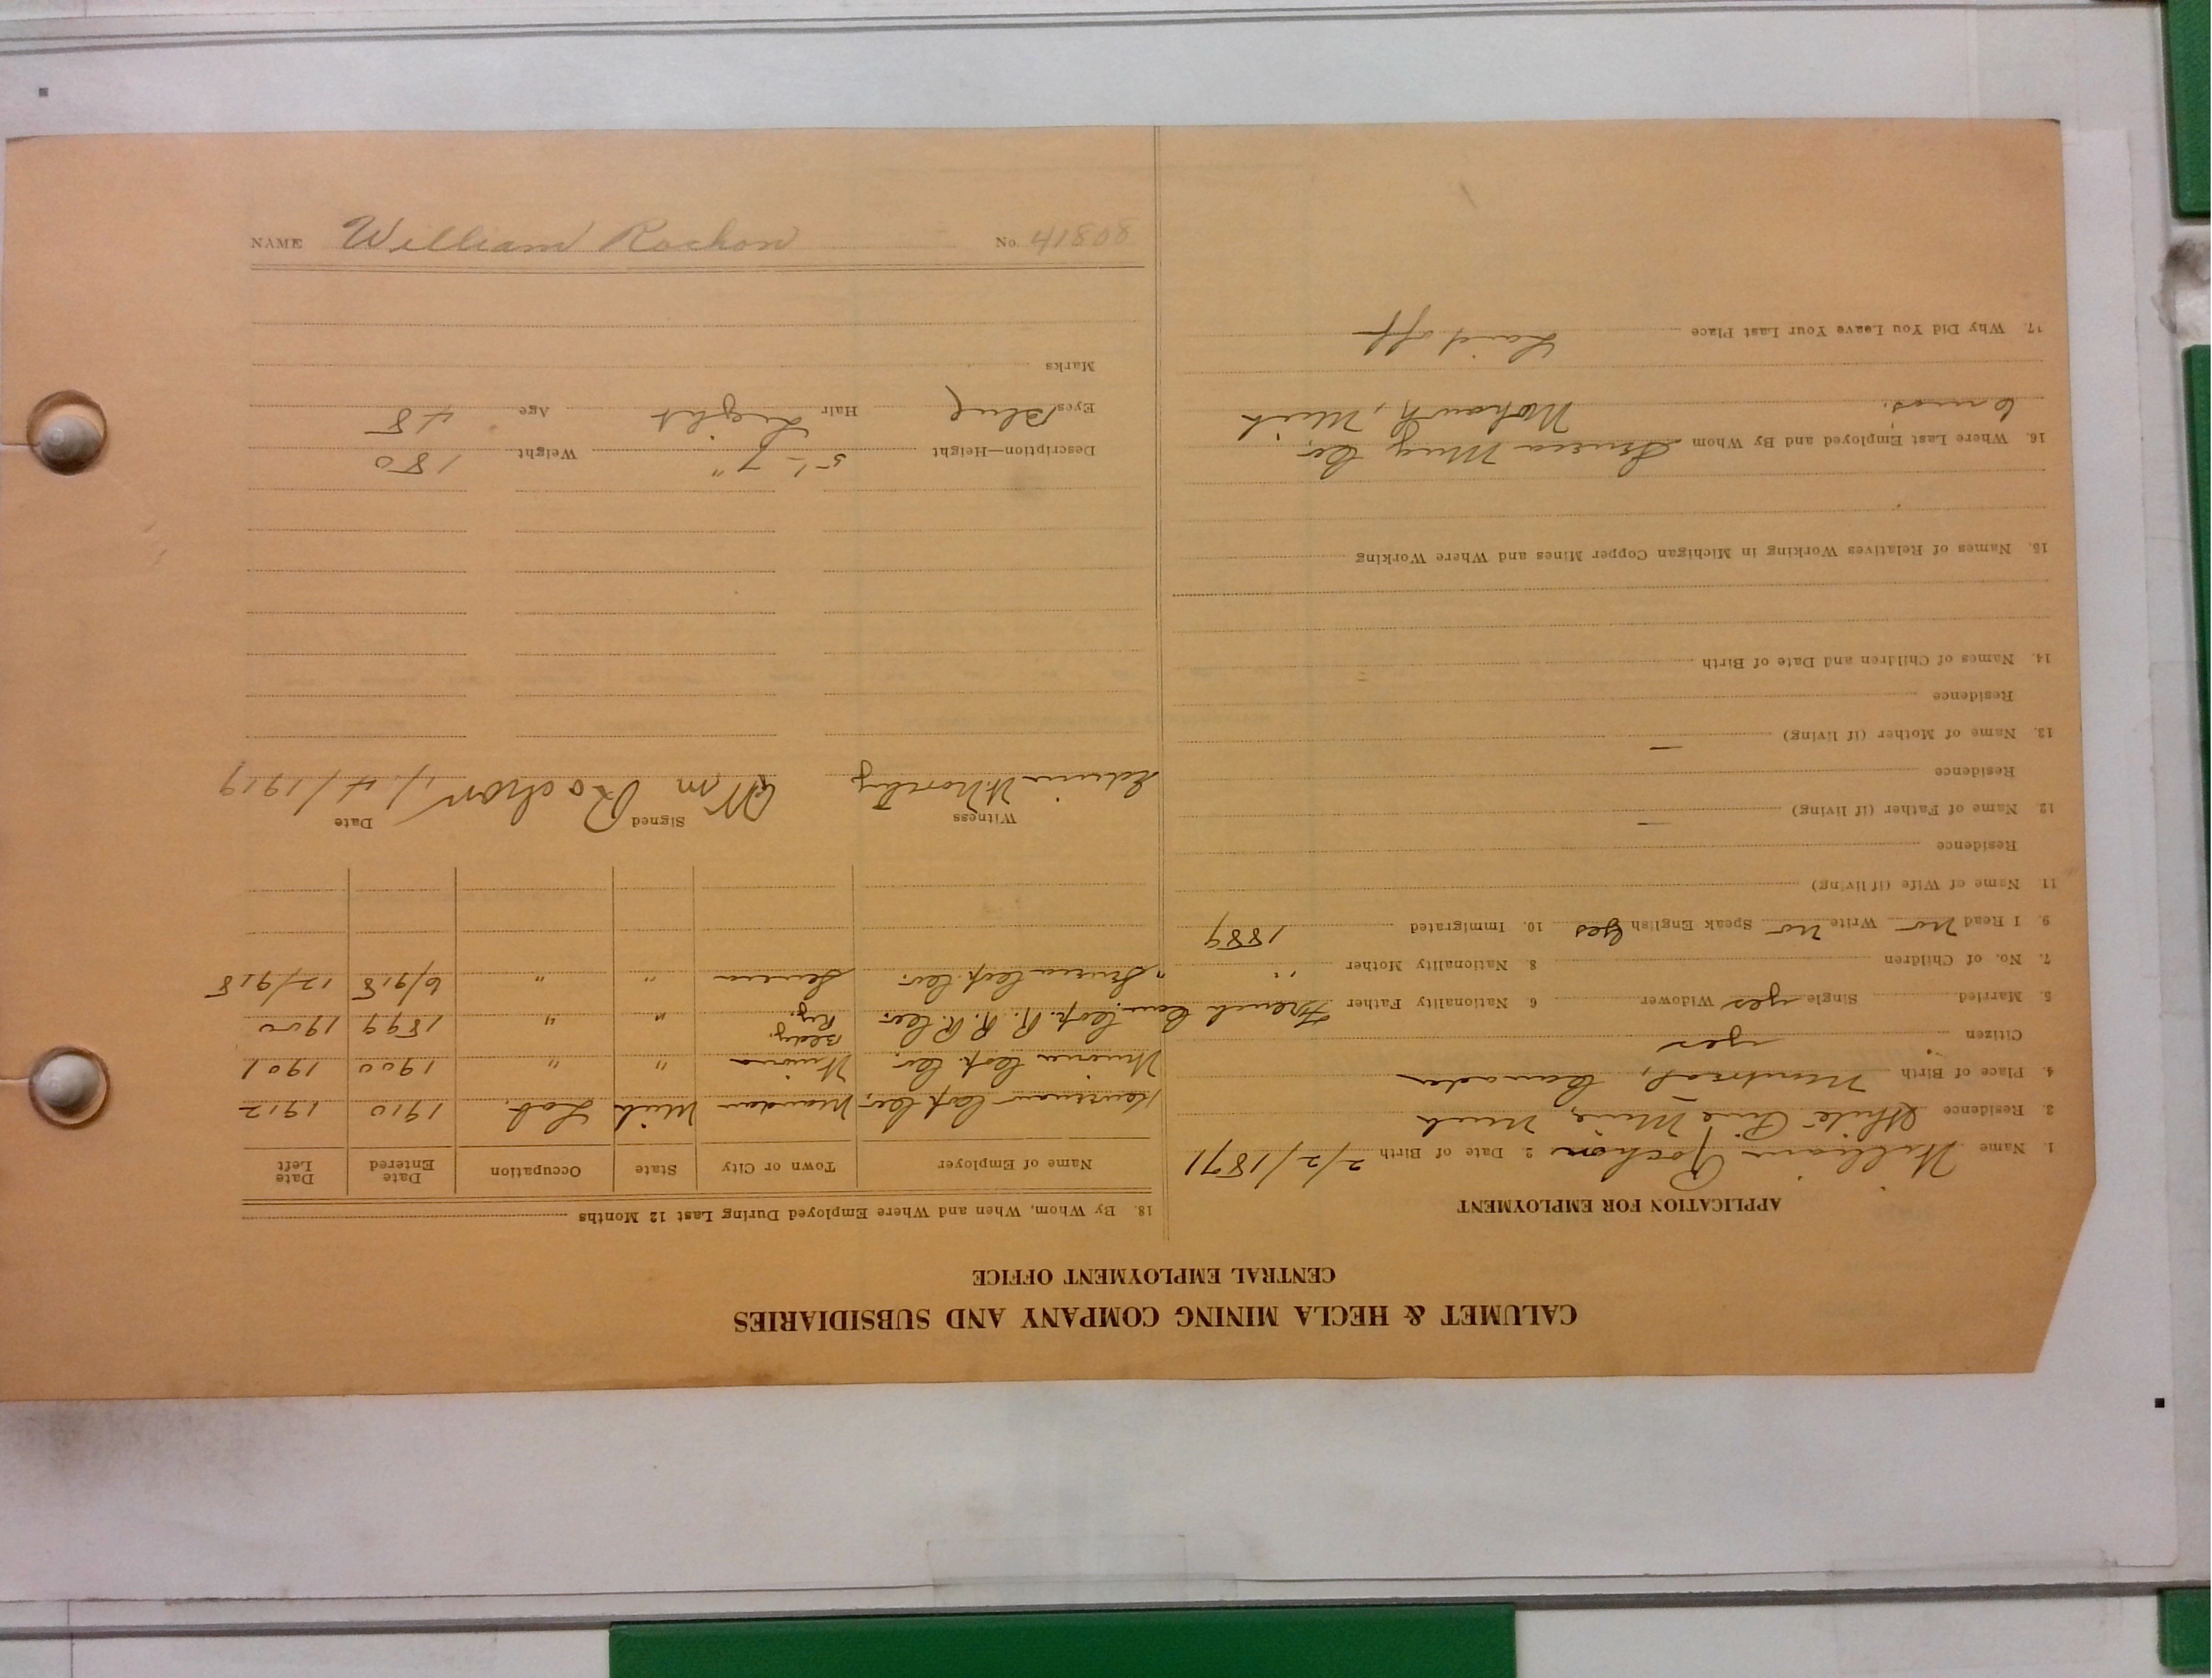 NAME William Rochon No. 41808
CALUMET & HECLA MINING COMPANY AND SUBSIDIARIES
CENTRAL EMPLOYMENT OFFICE
APPLICATION FOR EMPLOYMENT
1. Name William Rochon 2. Date of Birth 2/2/1871
3. Residence White Pine Mine, Mich
4. Place of Birth Montreal, Canada
Citizen yes
5. Married Single yes Widower 6. Nationality Father French Can.
7. No. of Children 8. Nationality Mother " "
9. I Read no Write no Speak English yes 10. Immigrated 1889
11. Name of Wife (if living)
Residence
12. Name of Father (if living) —
Residence
13. Name of Mother (if living) —
Residence
14. Names of Children and Date of Birth
15. Names of Relatives Working in Michigan Copper Mines and Where Working
16. Where Last Employed and By Whom Seneca Mng Co.
6 mos. Mohawk, Mich
17. Why Did You Leave Your Last Place Laid off
18. By Whom, When and Where Employed During Last 12 Months
Name of Employer Town or City State Occupation Date Entered Date Left
Cop. Co. Mandan Mich Lab. 1910 1912
Winona Cop. Co. Winona " " 1900 1901
Cop. R. R. Co. " " 1899 1900
" Seneca Cop. Co. Seneca " " 6/918 12/918
Witness Signed Date
Edwin Wm Rochon 1/4/1919
Description—Height 5'-7" Weight 180
Eyes Blue Hair Light Age 48
Marks